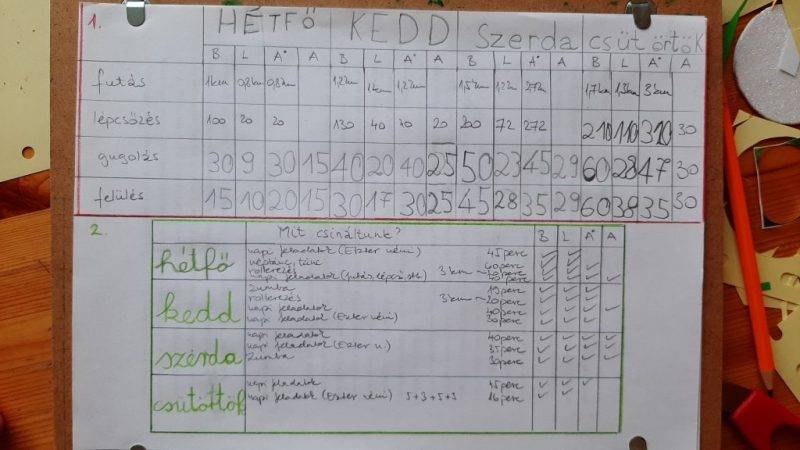 1. HÉTFŐ KEDD Szerda csütörtök
B L A• A B L A• A B L A• A B L A• A
futás 1km 0,8km 0,8km 1,2km 1km 1,2km 1,5km 1,2km 1,7km 1,3km 3km
lépcsőzés 100 20 20 130 40 20 200 72 272 210 110 310 30
gugolás 30 9 30 15 40 20 40 25 50 23 45 29 60 28 47 30
felülés 15 10 20 15 30 17 30 25 45 28 35 29 60 38 35 30
2. Mit csináltunk? B L A• A
hétfő napi feladatok (Eszter néni) 45 perc
néptánc, tánc 60 perc
rollerezés 3 km
napi feladatok (futás, lépcső, stb)
kedd zumba 15 perc
rollerezés 3 km 20 perc
napi feladatok 40 perc
napi feladatok (Eszter néni) 30 perc
szerda napi feladatok 40 perc
napi feladatok (Eszter n.) 35 perc
zumba 30 perc
csütörtök napi feladatok 45 perc
napi feladatok (Eszter néni) 5+3+5+3 16 perc